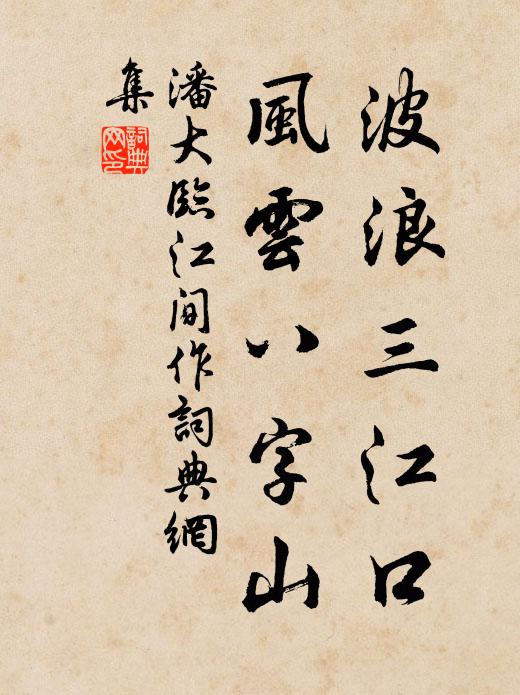 波浪三江口
風雲八字山
潘大臨江間作詞典網
集
詞典
网印